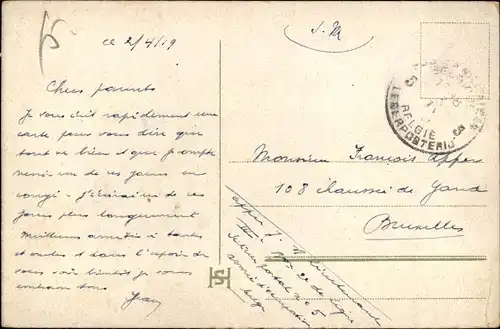 S.M
ce 2/4/19
Chers parents
Je vous écris rapidement une
carte pour vous dire que
tout va bien et que je compte
revenir un de ces jours en
congé. J'écrirai de ces
jours plus longuement
Meilleures amitiés à tantes
et oncles et dans l'espoir de
vous voir bientôt je vous
embrasse tous
BELGIE
LEGERPOSTERIJ
5
Monsieur François Appers
108 chaussée de Gand
Bruxelles
Appers J.
armée d'occupation
belge
HS